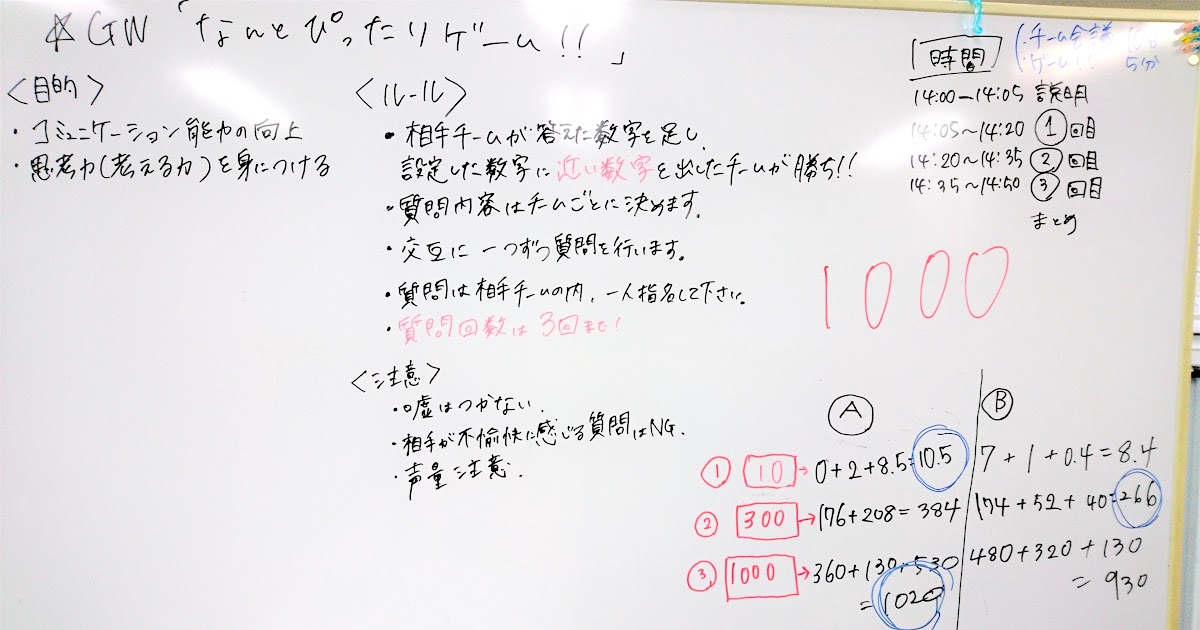 ☆GW「なんとぴったりゲーム!!」
<目的>
・コミュニケーション能力の向上
・思考力(考える力)を身につける
<ルール>
・相手チームが答えた数字を足し、
設定した数字に近い数字を出したチームが勝ち!!
・質問内容はチームごとに決めます。
・交互に一つずつ質問を行います。
・質問は相手チームの内、一人指名して下さい。
・質問回数は3回まで!
<注意>
・嘘はつかない.
・相手が不愉快に感じる質問はNG.
・声量注意.
時間
(・チーム会議
・ゲーム!! 5分
14:00-14:05 説明
14:05~14:20 ①回目
14:20~14:35 ②回目
14:35~14:50 ③回目
まとめ
1000
Ⓐ Ⓑ
① 10→0+2+8.5=10.5 7+1+0.4=8.4
② 300→176+208=384 174+52+40=266
③ 1000→360+130+530 480+320+130
=1020 =930